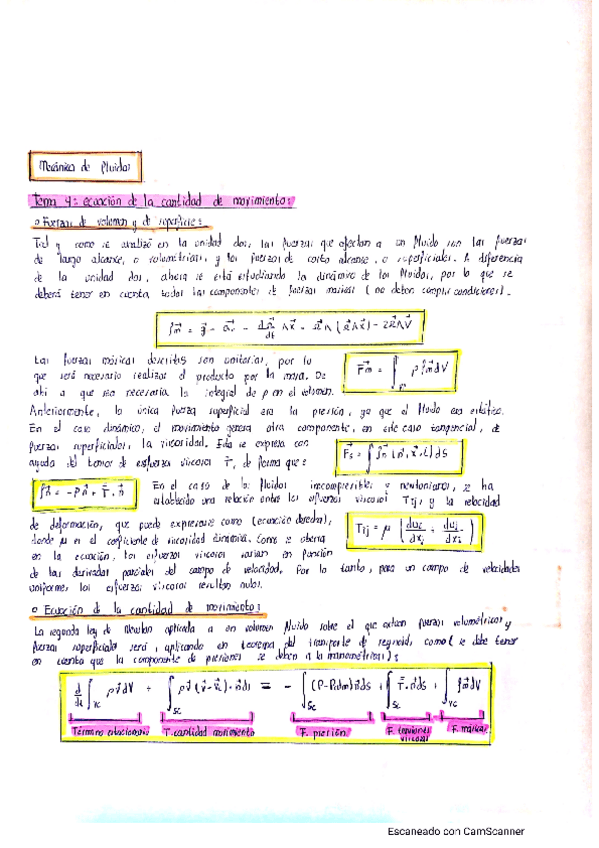 Mecánica de fluidos
Tema 4: ecuación de la cantidad de movimiento:
o Fuerzas de volumen y de superficie:
Tal y como se analizó en la unidad dos, las fuerzas que afectan a un fluido son las fuerzas
de largo alcance, o volumétricas, y las fuerzas de corto alcance, o superficiales. A diferencia
de la unidad dos, ahora se está estudiando la dinámica de los fluidos, por lo que se
deberá tener en cuenta todas las componentes de fuerzas másicas (no deben cumplir condiciones).
Las fuerzas másicas descritas son unitarias, por lo
que será necesario realizar el producto por la masa. De
ahí a que sea necesaria la integral de ρ en el volumen.
F⃗m = ∫ ρ f⃗m dV
Anteriormente, la única fuerza superficial era la presión, ya que el fluido era estático.
En el caso dinámico, el movimiento genera otra componente, en este caso tangencial, de
fuerzas superficiales, la viscosidad. Esta se expresa con
ayuda del tensor de esfuerzos viscosos T, de forma que:
f⃗n = -Pn⃗ + T·n⃗
En el caso de los fluidos incompresibles y newtonianos, se ha
establecido una relación entre los esfuerzos viscosos Tij, y la velocidad
de deformación, que puede expresarse como (ecuación derecha),
donde μ es el coeficiente de viscosidad dinámica. Como se observa
en la ecuación, los esfuerzos viscosos varían en función
de las derivadas parciales del campo de velocidad. Por lo tanto, para un campo de velocidades
uniforme, los esfuerzos viscosos resultan nulos.
o Ecuación de la cantidad de movimiento:
La segunda ley de Newton aplicada a un volumen fluido sobre el que actúan fuerzas volumétricas y
fuerzas superficiales será, aplicando en teorema del transporte de reynolds, como (se debe tener
en cuenta que la componente de presiones se deben a la manométrica):
d/dt ∫VC ρv⃗dV + ∫SC ρv⃗(v⃗-v⃗c)·n⃗ds = - ∫SC (P-Patm)n⃗ds + ∫SC T·n⃗ds + ∫VC ρf⃗mdV
T. cantidad movimiento F. presión F. tensiones viscosas F. másica
Escaneado con CamScanner